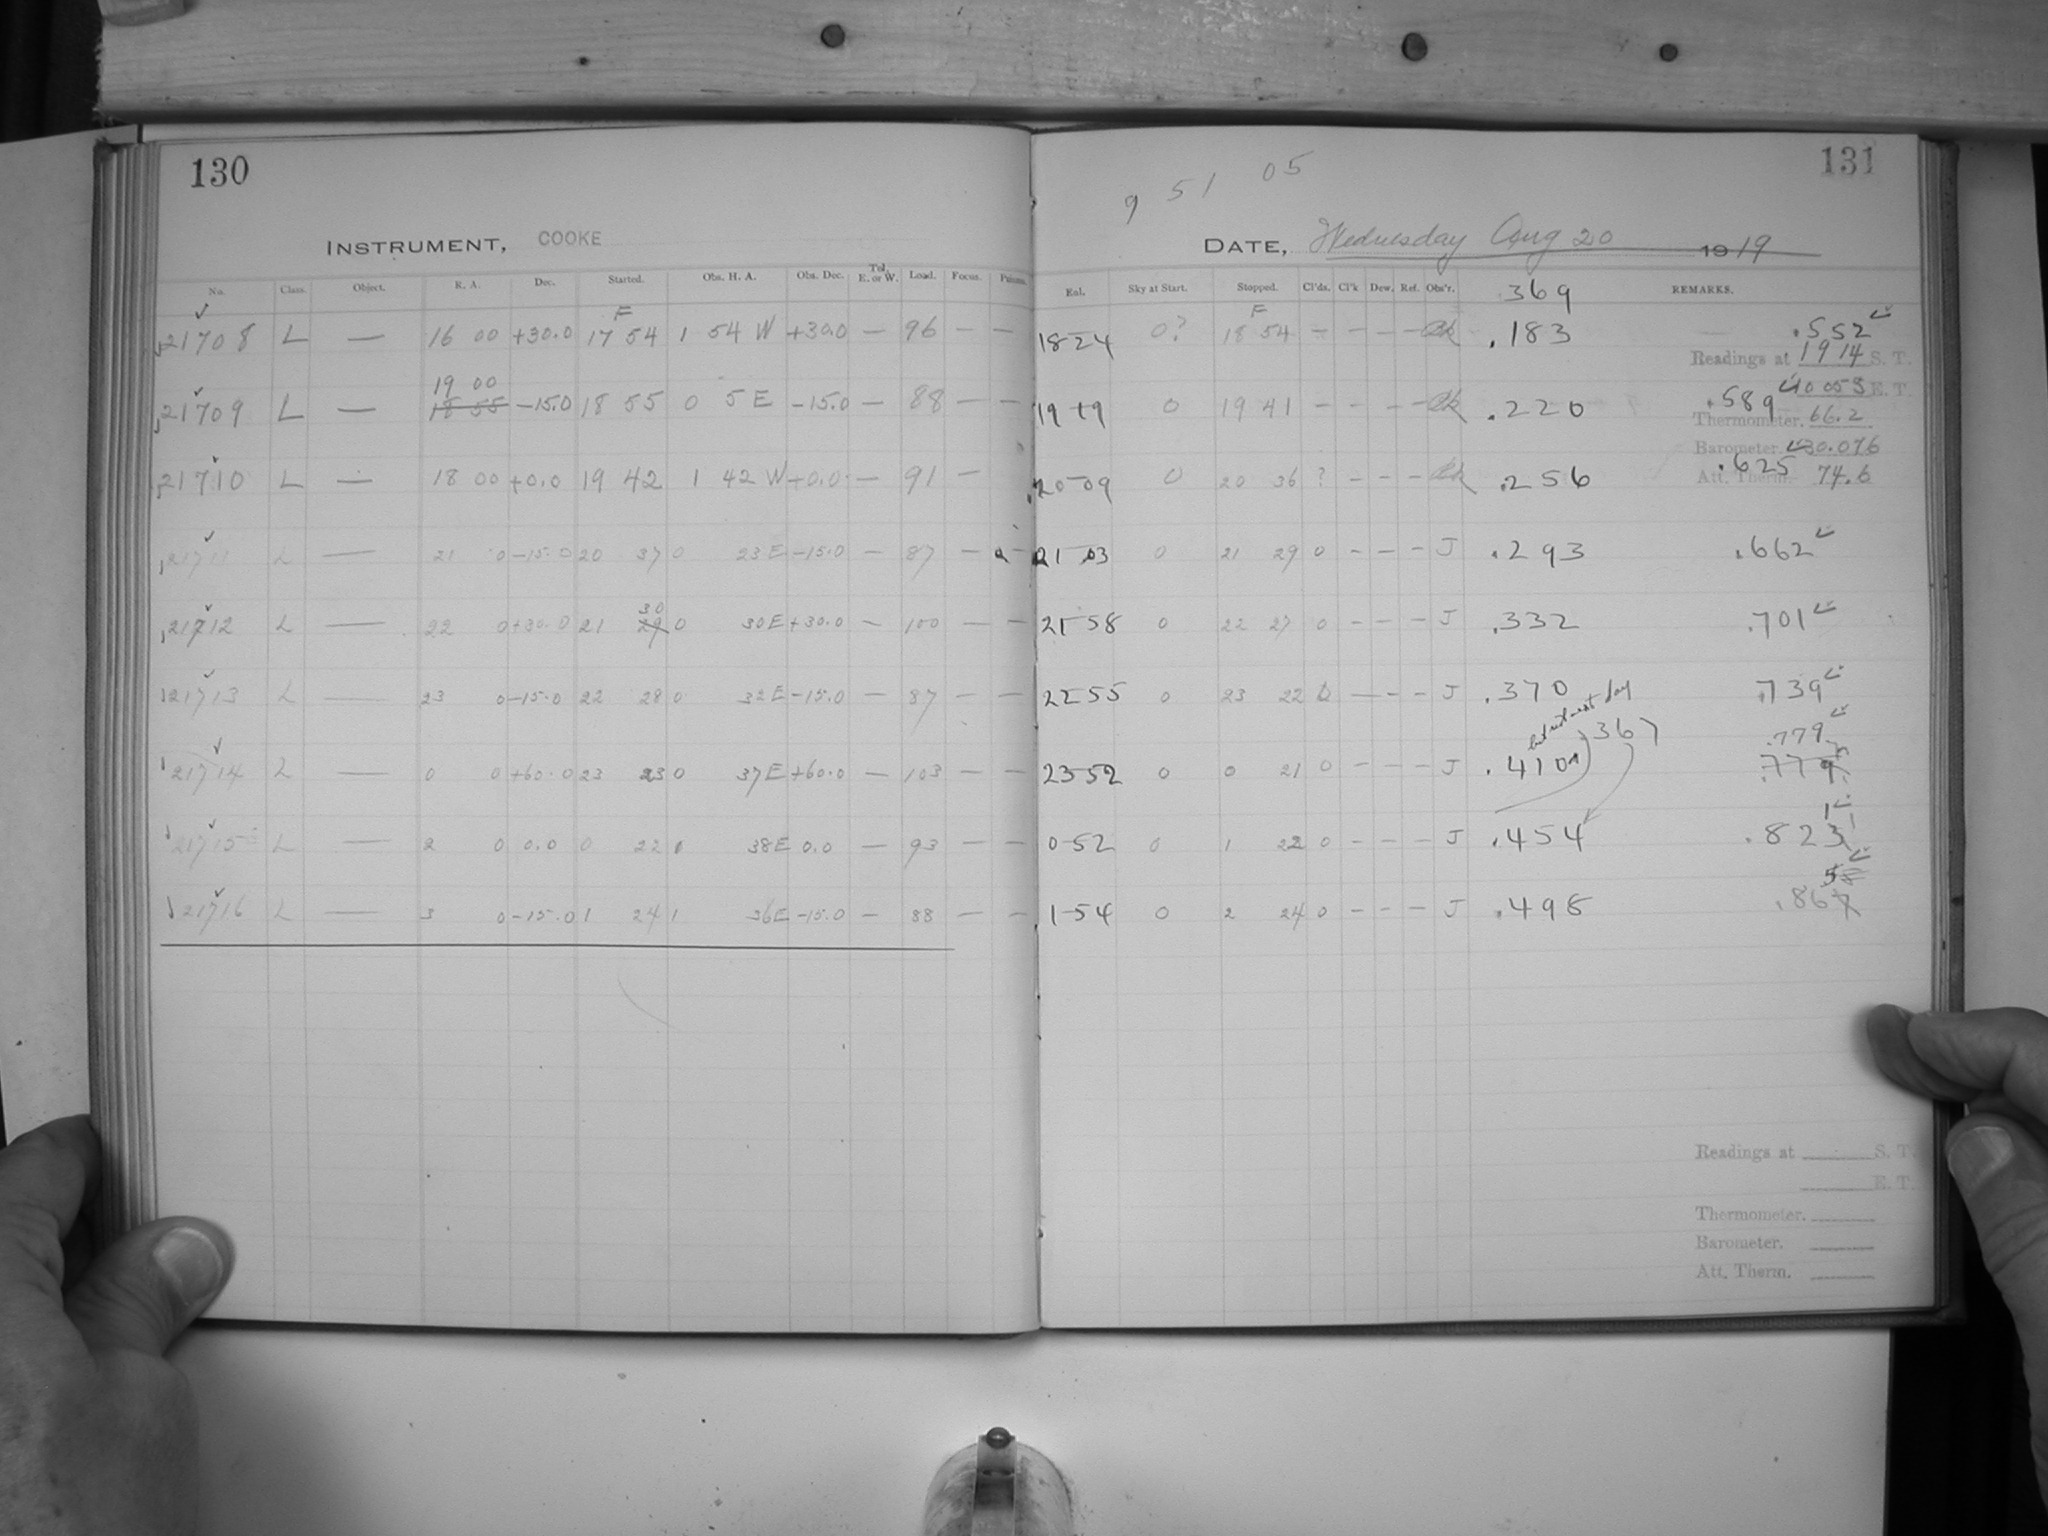 130
INSTRUMENT, COOKE
No. Class. Object. R. A. Dec. Started. Obs. H. A. Obs. Dec. Tel. E. or W. Load. Focus.
21708 L — 16 00 +30.0 17 54 F 1 54 W +30.0 — 96 — —
19 00
21709 L — 18 55 -15.0 18 55 0 5 E -15.0 — 88 — —
21710 L — 18 00 +0.0 19 42 1 42 W +0.0 — 91 —
21711 L — 21 0 -15.0 20 37 0 23 E -15.0 — 87 — —
30
21712 L — 22 0 +30.0 21 29 0 30 E +30.0 — 100 — —
21713 L — 23 0 -15.0 22 28 0 32 E -15.0 — 87 — —
21714 L — 0 0 +60.0 23 23 0 37 E +60.0 — 103 — —
21715 L — 2 0 0.0 0 22 1 38 E 0.0 — 93 — —
21716 L — 3 0 -15.0 1 24 1 36 E -15.0 — 88 — —
131
9 51 05
DATE, Wednesday Aug 20 1919
Sky at Start. Stopped. Cl'ds. Cl'k Dew. Ref. Obs'r. .369 REMARKS.
18-24 0? 18 54 F — — — — .183 .552
Readings at 1914 S. T.
E. T.
19-19 0 19 41 — — — — .220 .589
Thermometer. 66.2
Barometer. 30.076
20-09 0 20 36 ? — — — .256 .625
Att. Therm. 74.6
21-03 0 21 29 0 — — — J .293 .662
21-58 0 22 27 0 — — — J .332 .701
22-55 0 23 22 0 — — — J .370 .739
.367 .779
23-52 0 0 21 0 — — — J .410 .779
1
0-52 0 1 22 0 — — — J .454 .823
5
1-54 0 2 24 0 — — — J .498 .867
Readings at S. T.
E. T.
Thermometer.
Barometer.
Att. Therm.